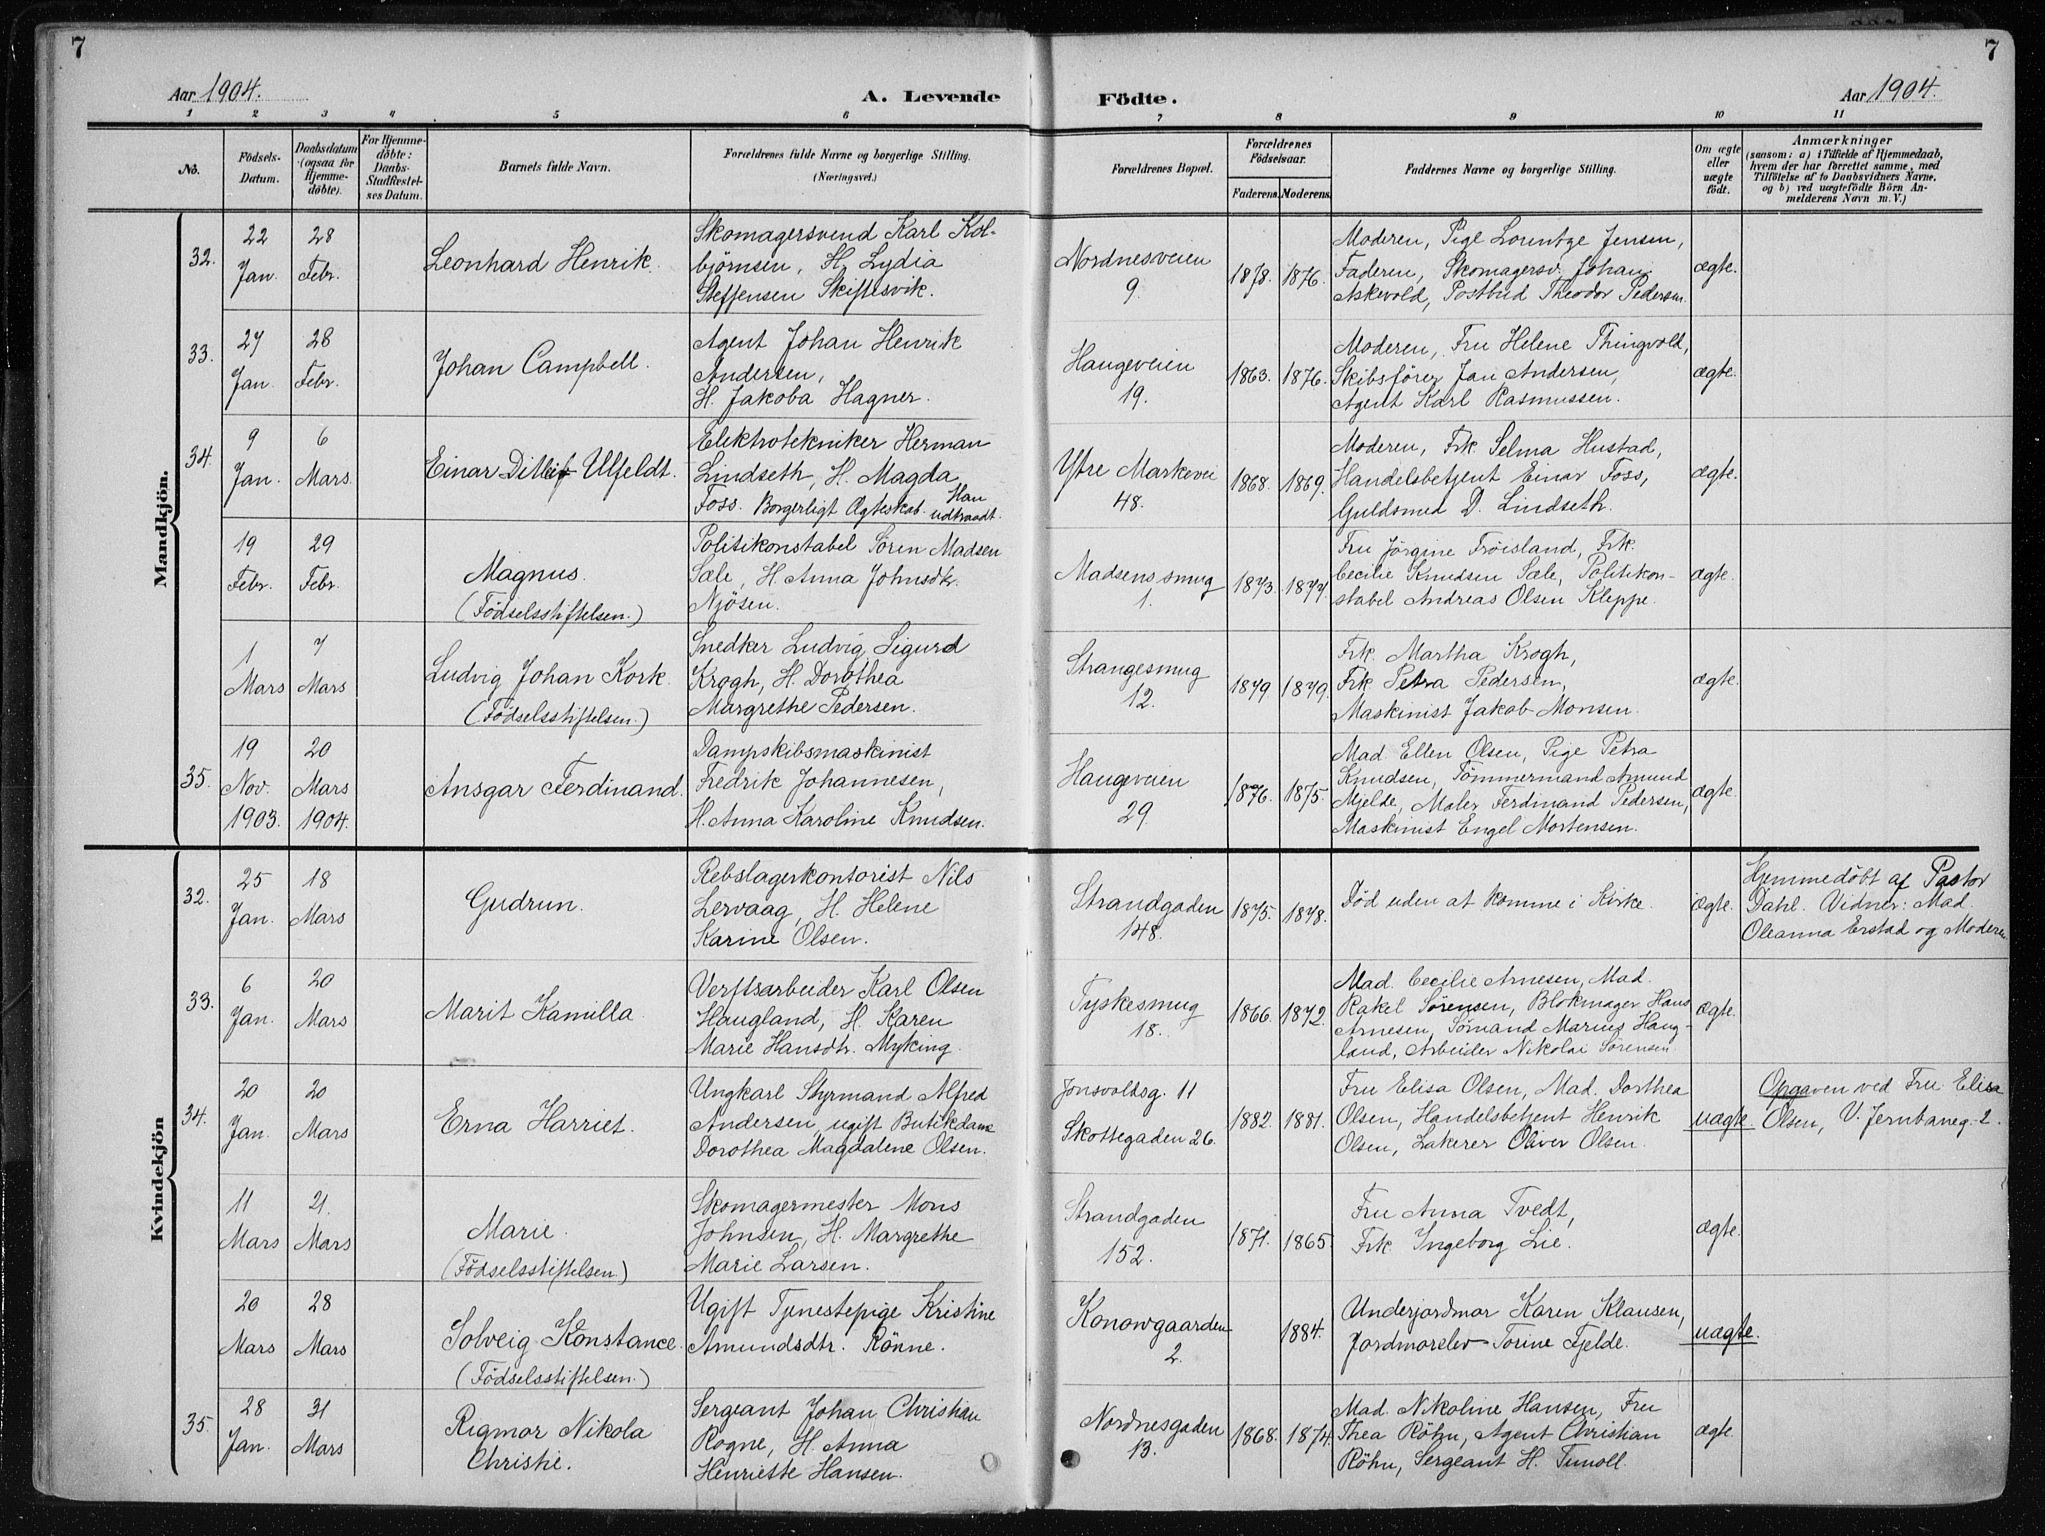 7
7
Aar 1904.
A. Levende
Födte.
Aar 1904.
1 2 3 4 5 6 7 8 9 10 11
No.
Födsels-
Datum.
Daabsdatum
(ogsaa for
Hjemme-
döbte).
For Hjemme-
döbte:
Daabs-
Stadfæstel-
ses Datum.
Barnets fulde Navn.
Forældrenes fulde Navne og borgerlige Stilling.
(Næringsvei.)
Forældrenes Bopæl.
Forældrenes
Födselsaar.
Faderens. Moderens.
Faddernes Navne og borgerlige Stilling.
Om ægte
eller
uægte
födt.
Anmærkninger
(saasom: a) i Tilfælde af Hjemmedaab,
hvem der har forrettet samme, med
Tilföielse af to Daabsvidners Navne,
og b) ved uægtefödte Börn An-
melderens Navn m. V.)
Mandkjön.
32.
22
Jan.
28
Febr.
Leonhard Henrik.
Skomagersvend Karl Kol-
bjørnsen, H. Lydia
Steffensen Skiftesvik.
Nordnesveien
9.
1878. 1876.
Moderen, Pige Lorentze Jensen,
Faderen, Skomagersv. Johan
Askevold, Postbud Theodor Pedersen.
ægte.
33.
27
Jan.
28
Febr.
Johan Campbell.
Agent Johan Henrik
Andersen,
H. Jakoba Hagner.
Haugeveien
19.
1863. 1876.
Moderen, Fru Helene Thingvold,
Skibsfører Jan Andersen,
Agent Karl Rasmussen.
ægte.
34.
9
Jan.
6
Mars.
Einar Ditlef Ulfeldt.
Elektrotekniker Herman
Lindseth, H. Magda
Foss. Borgerligt Ægteskab. Han
udtraadt.
Ytre Markevei
48.
1868. 1869.
Moderen, Frk. Selma Hustad,
Handelsbetjent Einar Foss,
Guldsmed D. Lindseth.
ægte.
19
Febr.
29
Febr.
Magnus.
(Födselsstiftelsen.)
Politikonstabel Søren Madsen
Sæle, H. Anna Johnsdtr.
Njøsen.
Madsens smug
1.
1873. 1877.
Fru Jørgine Frøisland, Frk.
Cecilie Knudsen Sæle, Politikon-
stabel Andreas Olsen Kleppe.
ægte.
1
Mars
7
Mars
Ludvig Johan Kork.
(Födselsstiftelsen.)
Snedker Ludvig Sigurd
Krogh, H. Dorothea
Margrethe Pedersen.
Strangesmug
12.
1879 1879.
Frk. Martha Krogh,
Frk Petra Pedersen,
Maskinist Jakob Monsen.
ægte.
35.
19
Nov.
1903.
20
Mars
1904.
Ansgar Ferdinand.
Dampskibsmaskinist
Fredrik Johannesen,
H. Anna Karoline Knudsen.
Haugeveien
29.
1876. 1875.
Mad. Ellen Olsen, Pige Petra
Knudsen, Tømmermand Amund
Mjelde, Maler Ferdinand Pedersen,
Maskinist Engel Mortensen.
ægte.
Kvindekjön
32.
25
Jan.
18
Mars
Gudrun.
Rebslagerkontorist Nils
Lervaag, H. Helene
Karine Olsen.
Strandgaden
148.
1875. 1878.
Død uden at komme i Kirke.
ægte.
Hjemmedöbt af Pastor
Dahl. Vidner: Mad.
Oleanna Erstad og Moderen.
33.
6
Jan.
20
Mars
Marit Kamilla.
Verftsarbeider Karl Olsen
Haugland, H. Karen
Marie Hansdtr. Myking.
Tyskesmug
18.
1866. 1872.
Mad. Cecilie Arnesen, Mad.
Rakel Sørensen, Blokmager Hans
Arnesen, Sømand Marius Haug-
land, Arbeider Nikolai Sørensen.
ægte.
34.
20
Jan.
20
Mars
Erna Harriet.
Ungkarl Styrmand Alfred
Andersen, ugift Butikdame
Dorothea Magdalene Olsen.
Jonsvoldsg. 11
Skottegaden 26.
1882. 1881.
Fru Elisa Olsen, Mad. Dorthea
Olsen, Handelsbetjent Henrik
Olsen, Lakerer Oliver Olsen.
uægte.
Opgaven ved Fru Elisa
Olsen, V. Jernbaneg. 2.
11
Mars
21.
Mars
Marie.
(Födselsstiftelsen.)
Skomagermester Mons
Johnsen, H. Margrethe
Marie Larsen.
Strandgaden
152.
1871. 1865.
Fru Anna Tvedt,
Frk. Ingeborg Lie.
ægte.
20
Mars
28
Mars
Solveig Konstance.
(Födselsstiftelsen.)
Ugift Tjenestepige Kristine
Amundsdtr. Rönne.
Konowgaarden
2.
1884.
Underjordmor Karen Klausen,
Jordmorelev Torine Fjelde.
uægte.
35.
28
Jan.
31
Mars
Rigmor Nikola
Christie.
Sergeant Johan Christian
Rogne, H. Anna
Henriette Hansen.
Nordnesgaden
13.
1868. 1874.
Mad. Nikoline Hansen, Fru
Thea Röhn, Agent Christian
Röhn, Sergeant H. Tumoll.
ægte.